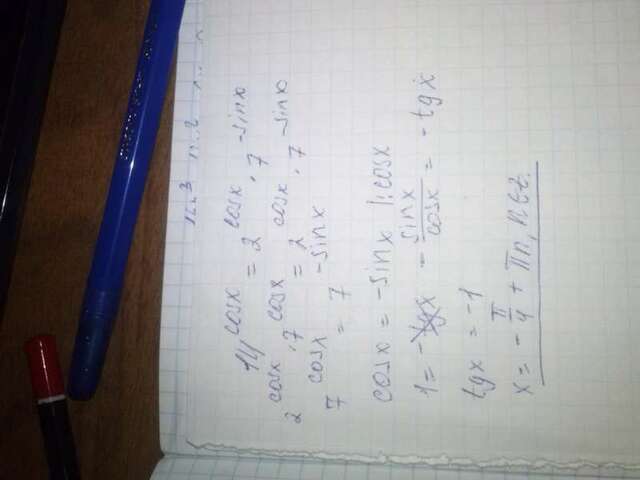 14^cosx = 2^cosx · 7^-sinx
2^cosx · 7^cosx = 2^cosx · 7^-sinx
7^cosx = 7^-sinx
cosx = -sinx |:cosx
1 = - sinx/cosx = -tgx
tgx = -1
x = -π/4 + πn, n∈Z.